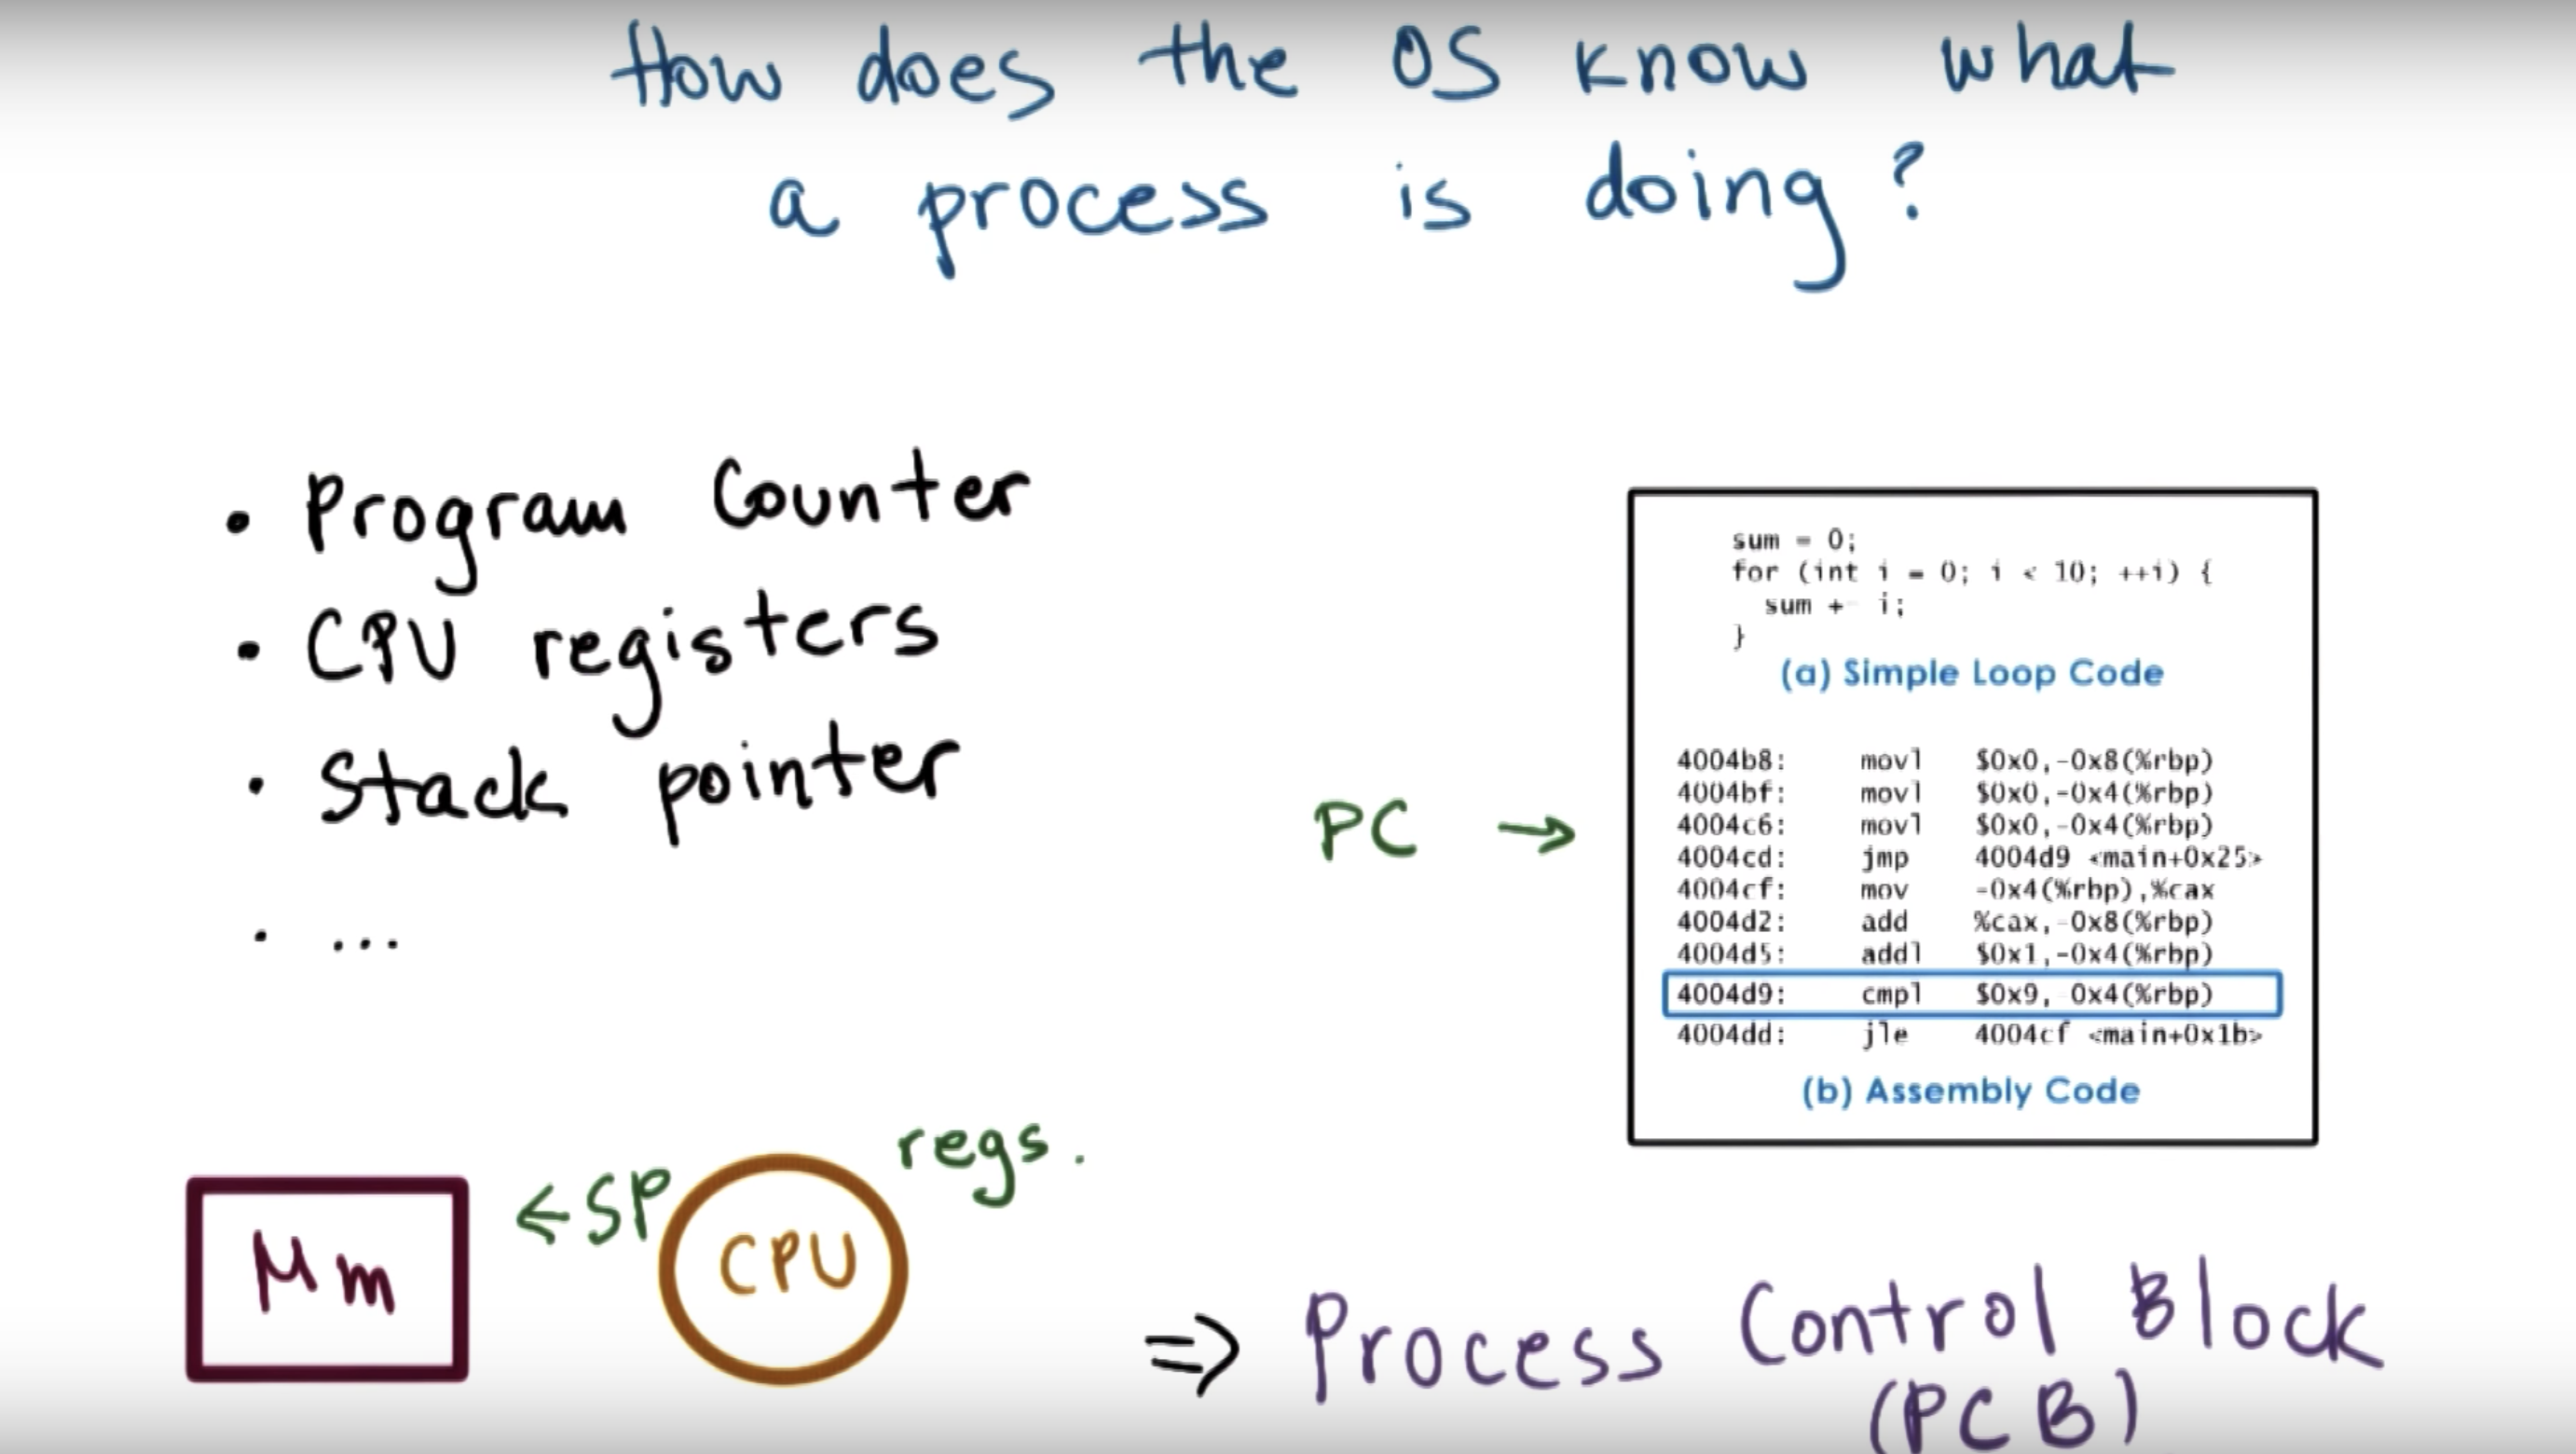 How does the OS know what
a process is doing?
• Program Counter
• CPU registers
• Stack pointer
• ...
PC →
sum = 0;
for (int i = 0; i < 10; ++i) {
sum + i;
}
(a) Simple Loop Code
4004b8: movl $0x0,-0x8(%rbp)
4004bf: movl $0x0,-0x4(%rbp)
4004c6: movl $0x0,-0x4(%rbp)
4004cd: jmp 4004d9 <main+0x25>
4004cf: mov -0x4(%rbp),%cax
4004d2: add %cax,-0x8(%rbp)
4004d5: addl $0x1,-0x4(%rbp)
4004d9: cmpl $0x9, 0x4(%rbp)
4004dd: jle 4004cf <main+0x1b>
(b) Assembly Code
Mm
← SP
CPU
regs.
⇒ Process Control Block
(PCB)